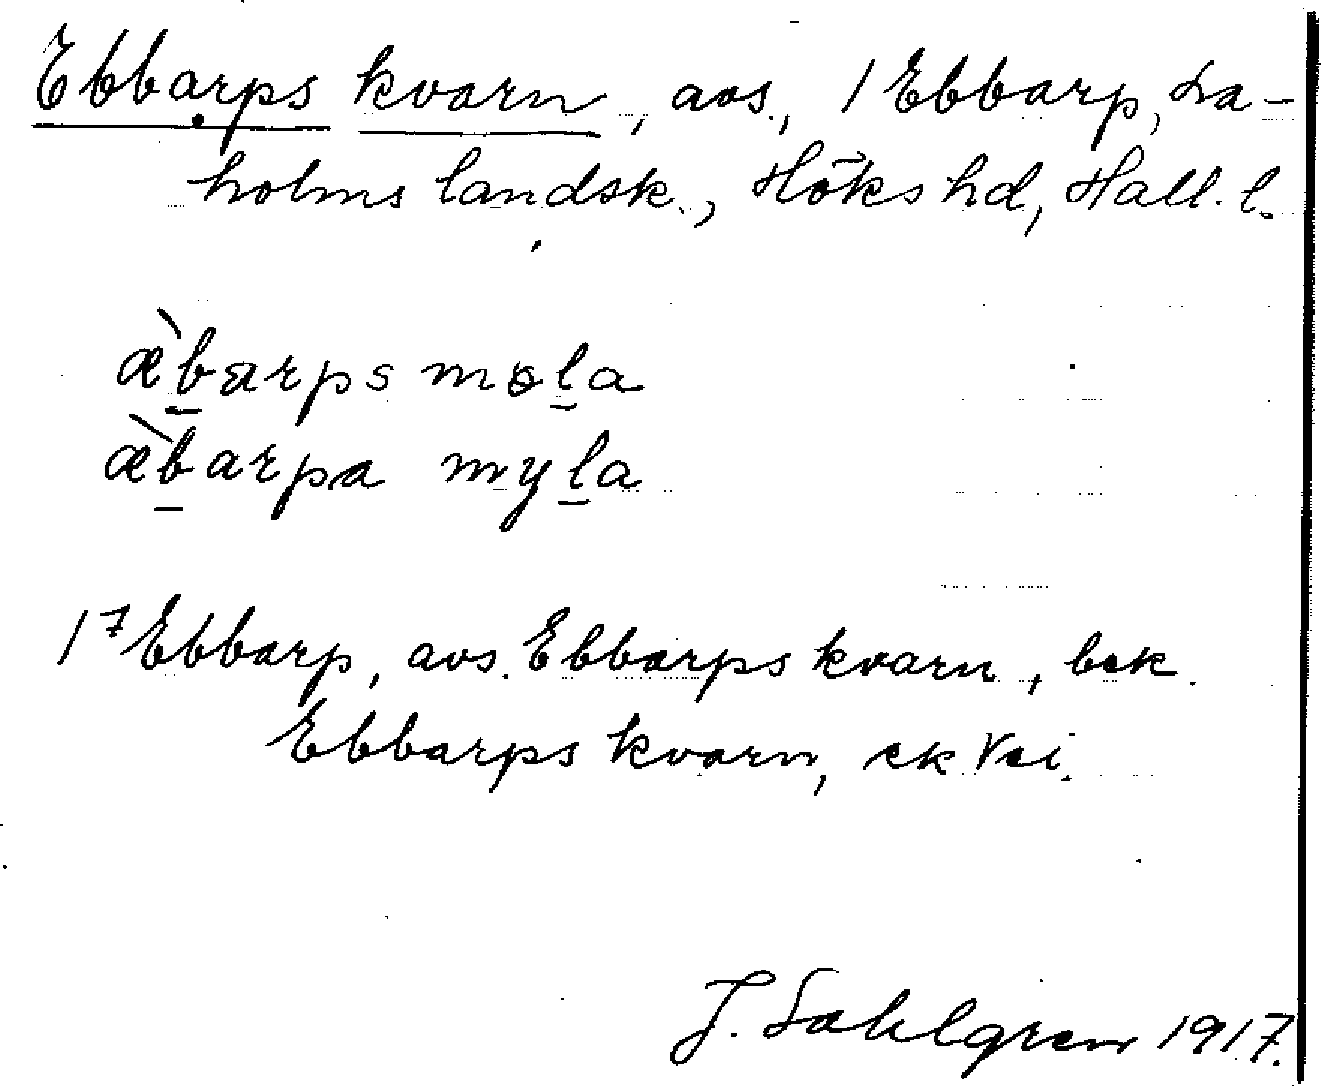 Ebbarps kvarn, avs., 1 Ebbarp, La-
holms landsk., Höks hd, Hall. l.
æ̀b̲arps møl̲a
æ̀b̲arpa myl̲a
1⁷ Ebbarp, avs. Ebbarps kvarn, bek.
Ebbarps kvarn, ek
J. Sahlgren 1917.